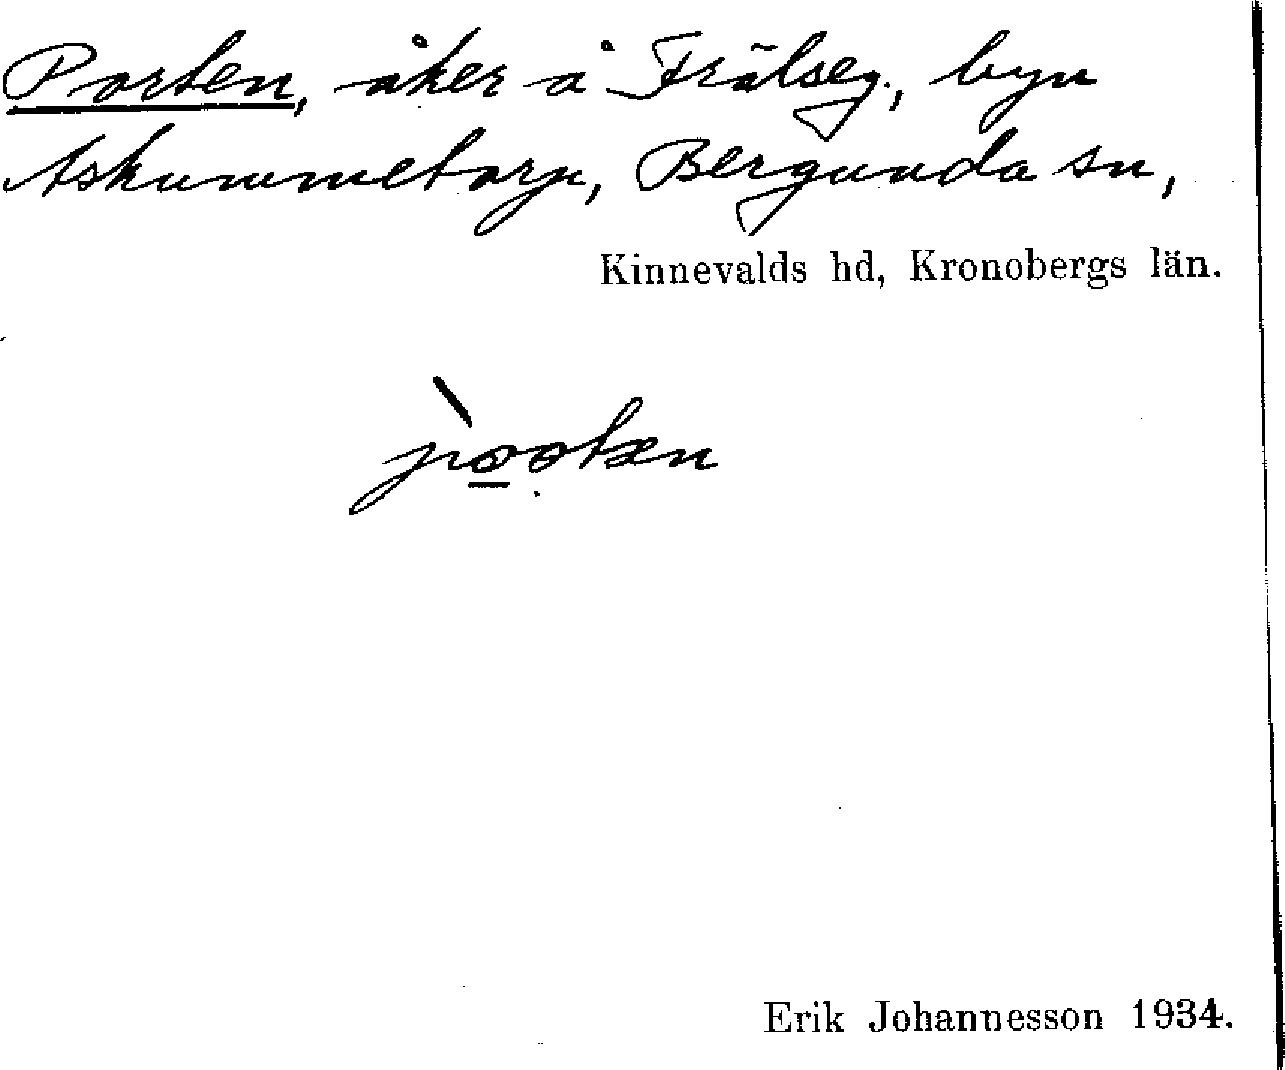 Porten, åker å Frälseg., byn
Askummetorp, Bergunda sn,
Kinnevalds hd, Kronobergs län.
Erik Johannesson 1934.